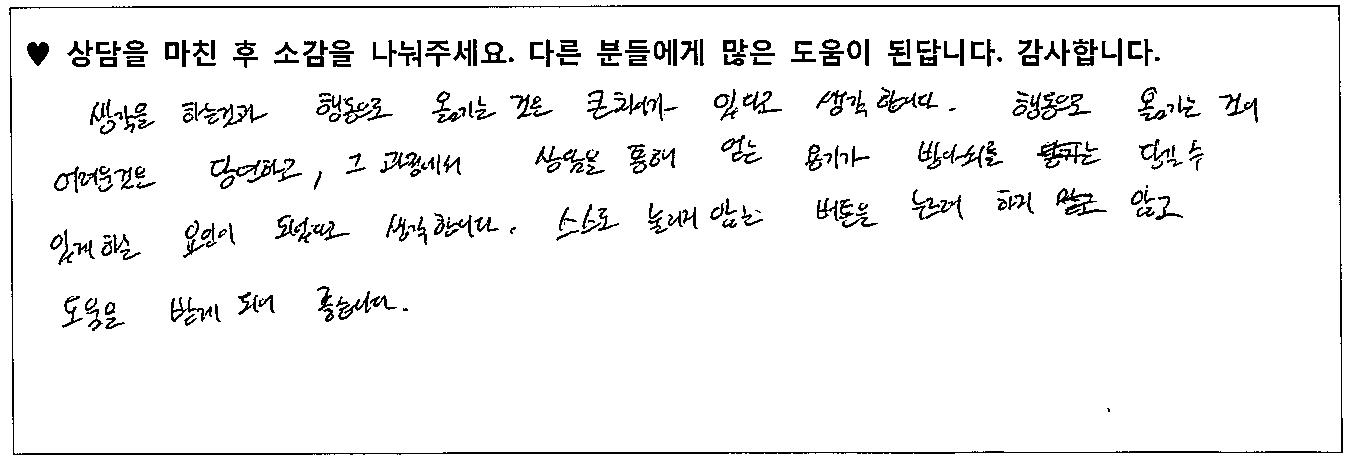 ♥ 상담을 마친 후 소감을 나눠주세요. 다른 분들에게 많은 도움이 된답니다. 감사합니다.
생각을 하는것과 행동으로 옮기는 것은 큰차이가 있다고 생각합니다. 행동으로 옮기는 것이
어려운것은 당연하고, 그 과정에서 상담을 통해 얻는 용기가 방아쇠를 당길 수
있게 하는 요인이 되었다고 생각합니다. 스스로 눌리지 않는 버튼을 누르려 하지 않고
도움을 받게 되어 좋습니다.